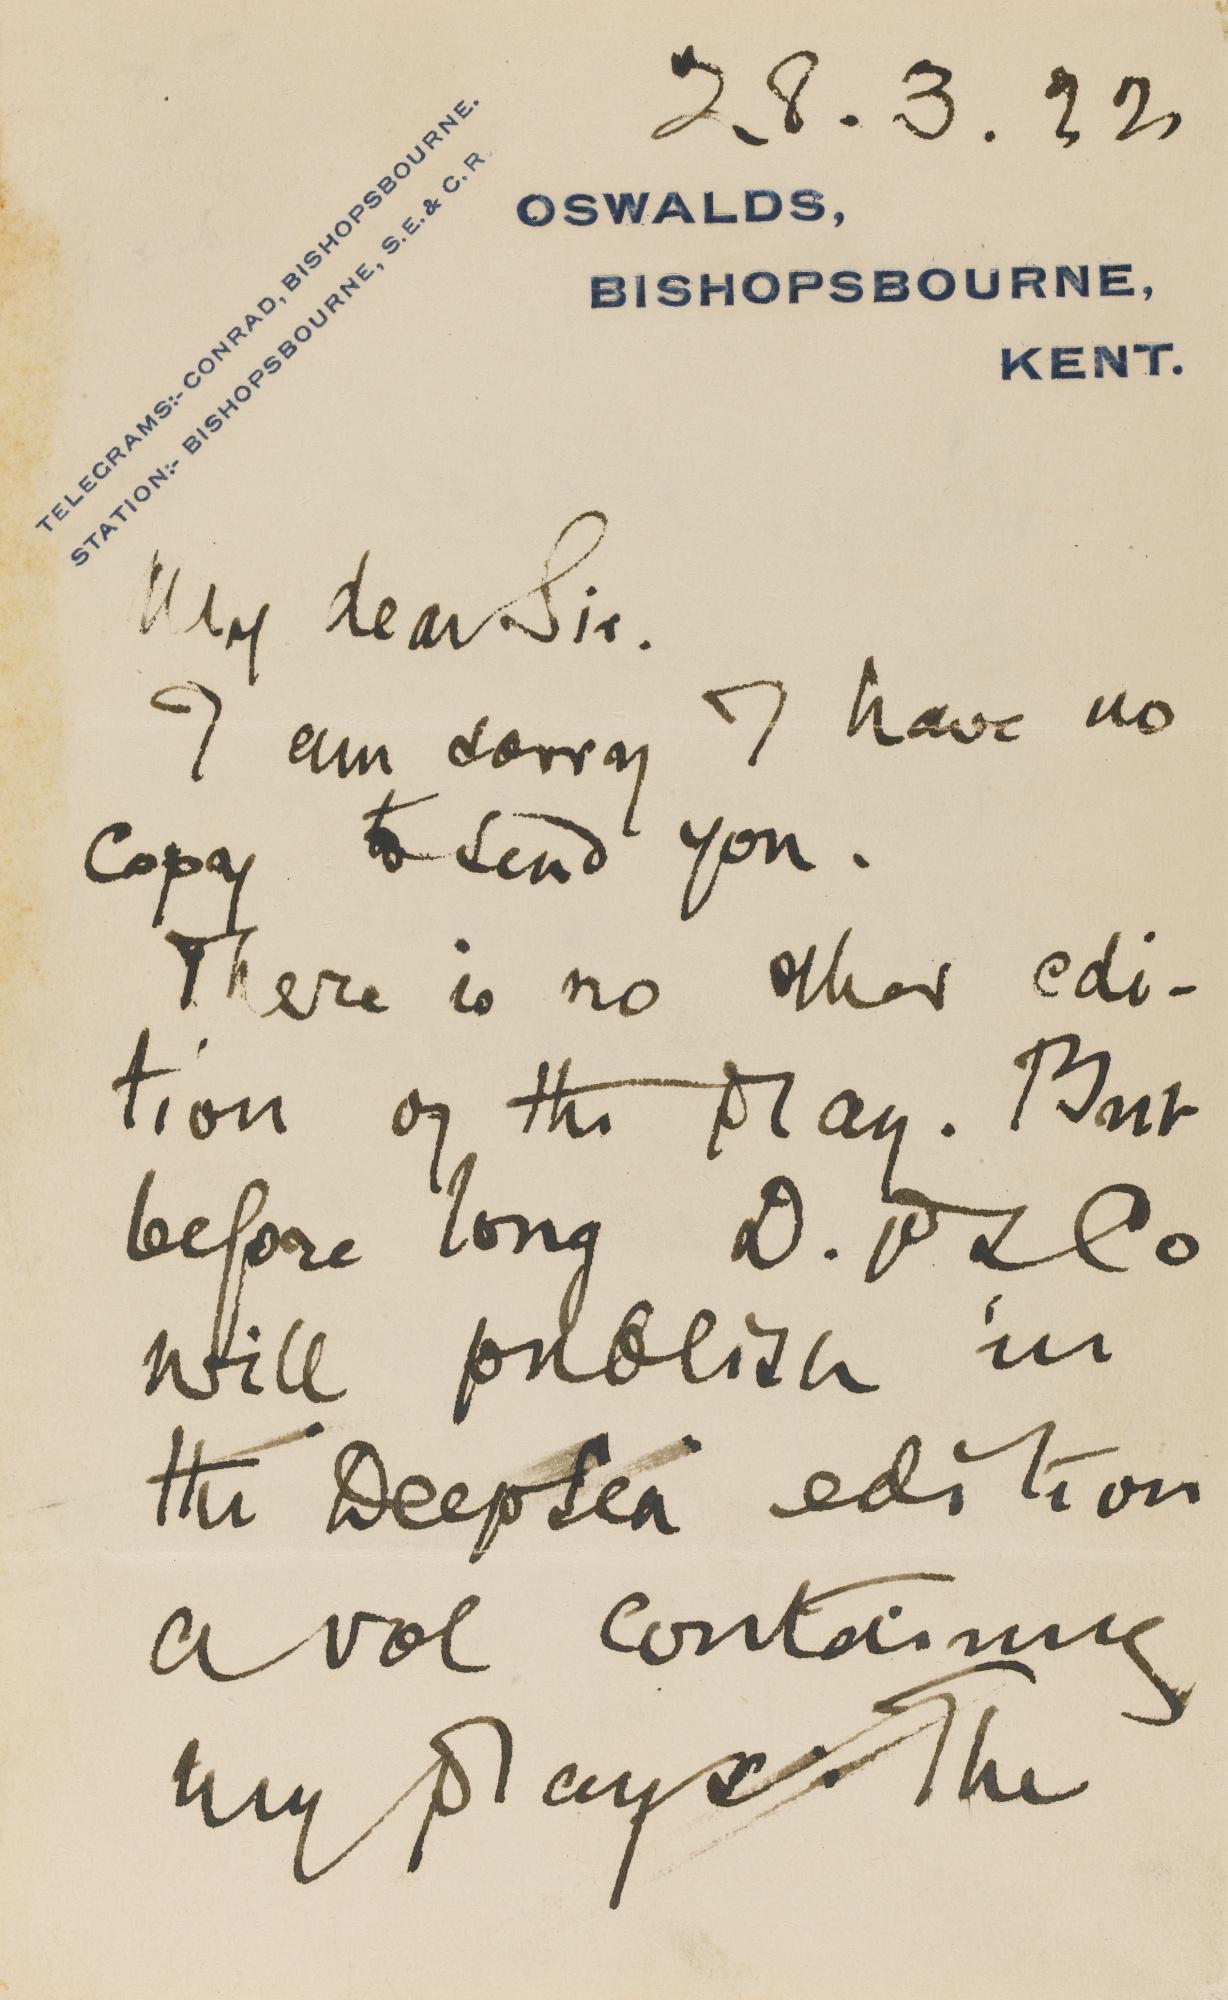 28.3.22
TELEGRAMS:- CONRAD, BISHOPSBOURNE.
STATION:- BISHOPSBOURNE, S.E. & C. R.
OSWALDS,
BISHOPSBOURNE,
KENT.
My dear Sir.
I am sorry I have no
copy to send you.
There is no other edi-
tion of the play. But
before long D. P & Co
will publish in
the Deep Sea edition
a vol containing
my plays. The